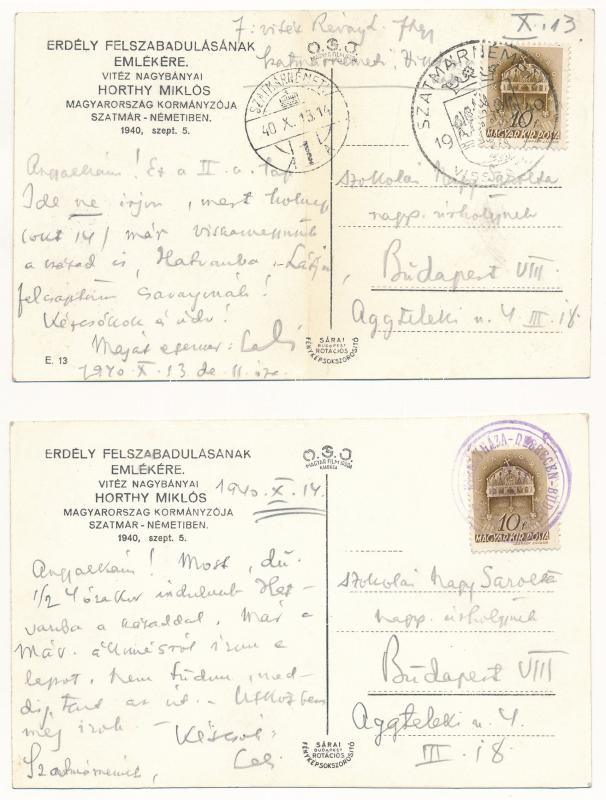 J: vitéz Révay J.
Szatmárnémeti,
X. 13.
ERDÉLY FELSZABADULÁSÁNAK
EMLÉKÉRE.
VITÉZ NAGYBÁNYAI
HORTHY MIKLÓS
MAGYARORSZÁG KORMÁNYZÓJA
SZATMÁR-NÉMETIBEN.
1940, szept. 5.
O.G.O.
MAGYAR FILM IRODA
SZATMÁRNÉMETI
40 X. 13. 14
SZATMÁRNÉMETI
19 40
VISSZATÉRT
10 f
MAGYAR KIR. POSTA
Angyalkám! Ez a II. a. lap
Ide ne írjon, mert holnap
(okt 14) már visszamegyünk
a század is, Hatvanba
Kézcsókok és üdv!
1940. X. 13 de. 11.
E. 13
szokolai Nagy Sarolta
nagys. úrhölgynek
Budapest VIII.
Aggteleki u. 4 III. i8.
SÁRAI
BUDAPEST
ROTÁCIÓS
FÉNYKÉPSOKSZOROSÍTÓ
ERDÉLY FELSZABADULÁSÁNAK
EMLÉKÉRE.
VITÉZ NAGYBÁNYAI
HORTHY MIKLÓS
MAGYARORSZÁG KORMÁNYZÓJA
SZATMÁR-NÉMETIBEN.
1940, szept. 5.
O.G.O.
MAGYAR FILM IRODA
KIADÁSA
1940. X. 14.
DEBRECEN-BUD
10 f
MAGYAR KIR. POSTA
Angyalkám! Most, du
1/2 4 órakor indulunk Hat-
vanba a századdal. Már a
Máv. állomásról írom a
lapot. Nem tudom, med-
dig tart az út. Útközben
még írok. Kézcsók:
Szatmárnémeti,
szokolai Nagy Sarolta
nagys. úrhölgynek
Budapest VIII
Aggteleki u. 4
III. i8.
SÁRAI
BUDAPEST
ROTÁCIÓS
FÉNYKÉPSOKSZOROSÍTÓ